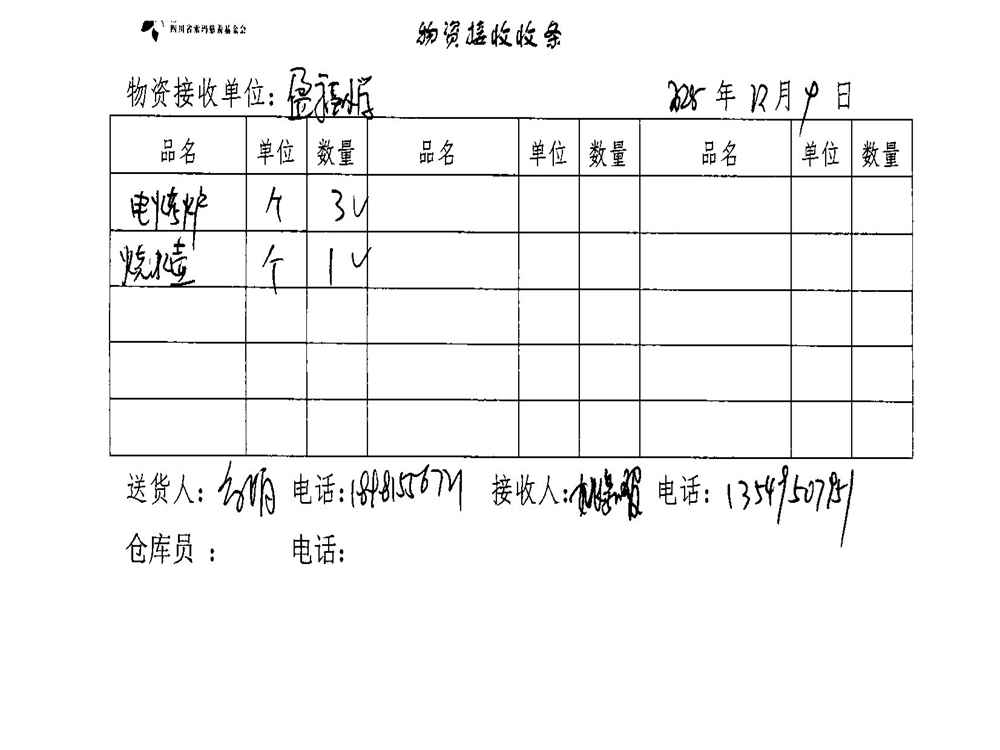 四川省索玛慈善基金会
物资接收收条
物资接收单位：盈福小学 2025 年 12 月 9 日
品名 单位 数量 品名 单位 数量 品名 单位 数量
电烤炉 个 3
烧水壶 个 1
送货人： 电话： 接收人： 电话：13549507951
仓库员 ： 电话：